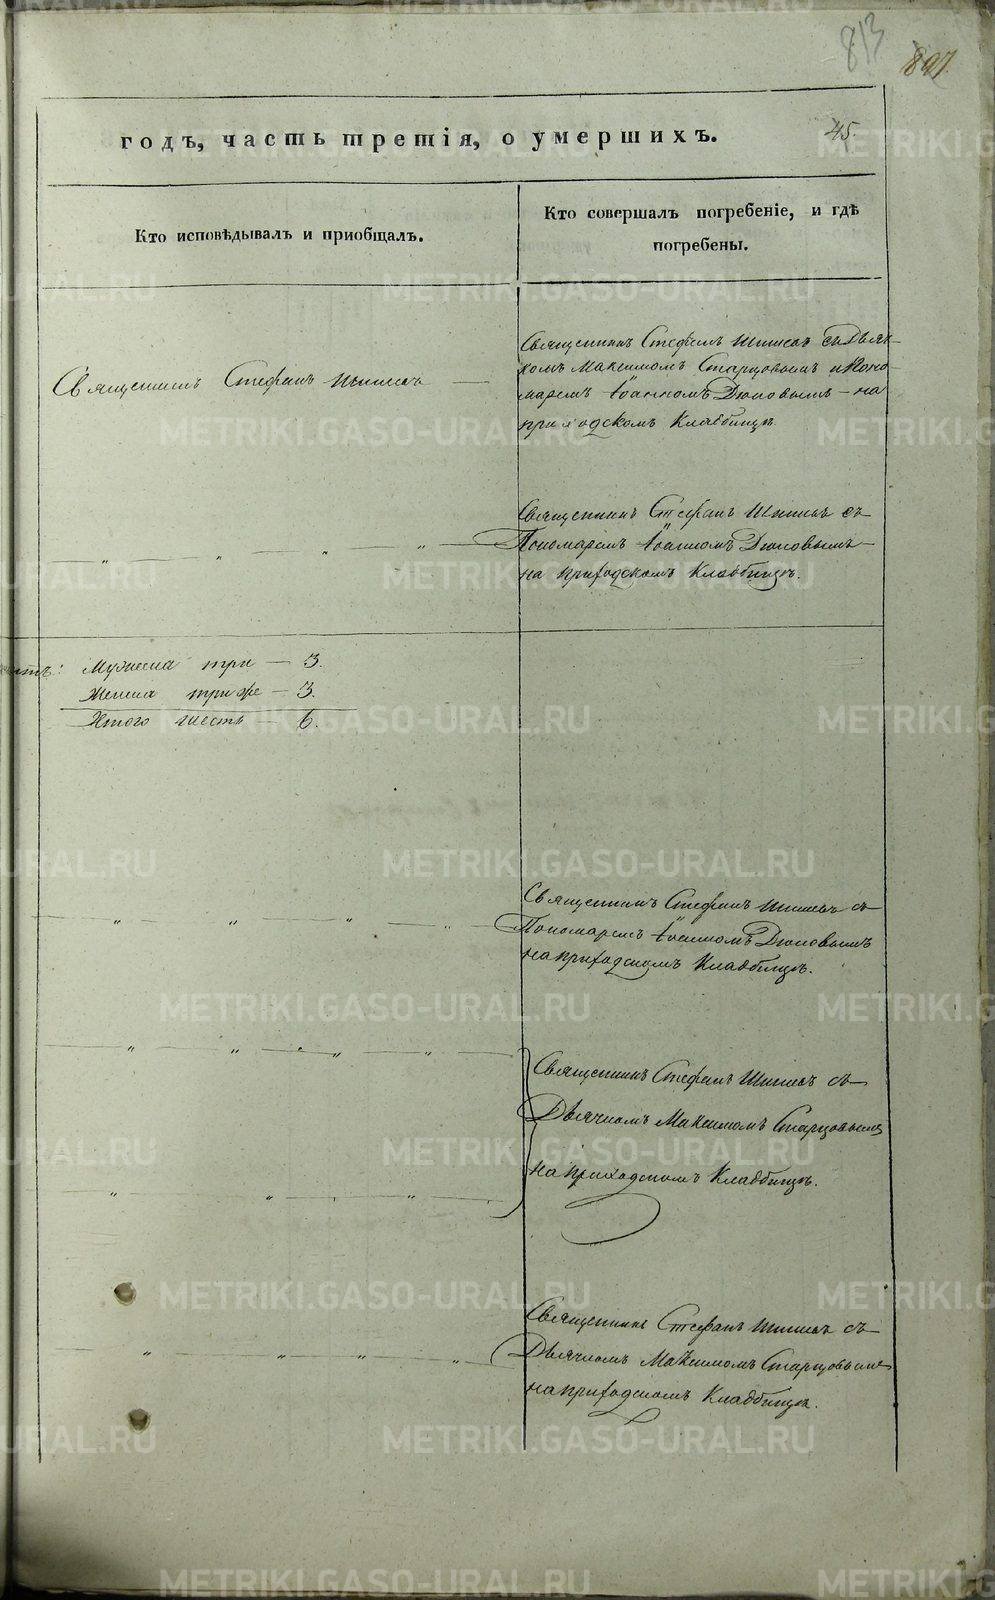 813
897.
45.
годъ, часть третія, о умершихъ.
Кто исповѣдывалъ и приобщалъ.
Кто совершалъ погребеніе, и гдѣ
погребены.
Священникъ Стефанъ
Священникъ Стефанъ съ Дьяч-
комъ Максимомъ Старцовымъ и Поно-
маремъ Іоанномъ Дюповымъ — на
приходскомъ Кладбищѣ.
Священникъ Стефанъ съ
Пономаремъ Іоанномъ Дюповымъ
на приходскомъ Кладбищѣ.
Мужеска три — 3.
Женска три же — 3.
Итого шесть — 6.
Священникъ Стефанъ съ
Пономаремъ Іоанномъ Дюповымъ
на приходскомъ Кладбищѣ.
Священникъ Стефанъ съ
Дьячкомъ Максимомъ Старцовымъ
на приходскомъ Кладбищѣ.
Священникъ Стефанъ съ
Дьячкомъ Максимомъ Старцовымъ
на приходскомъ Кладбищѣ.
METRIKI.GASO-URAL.RU